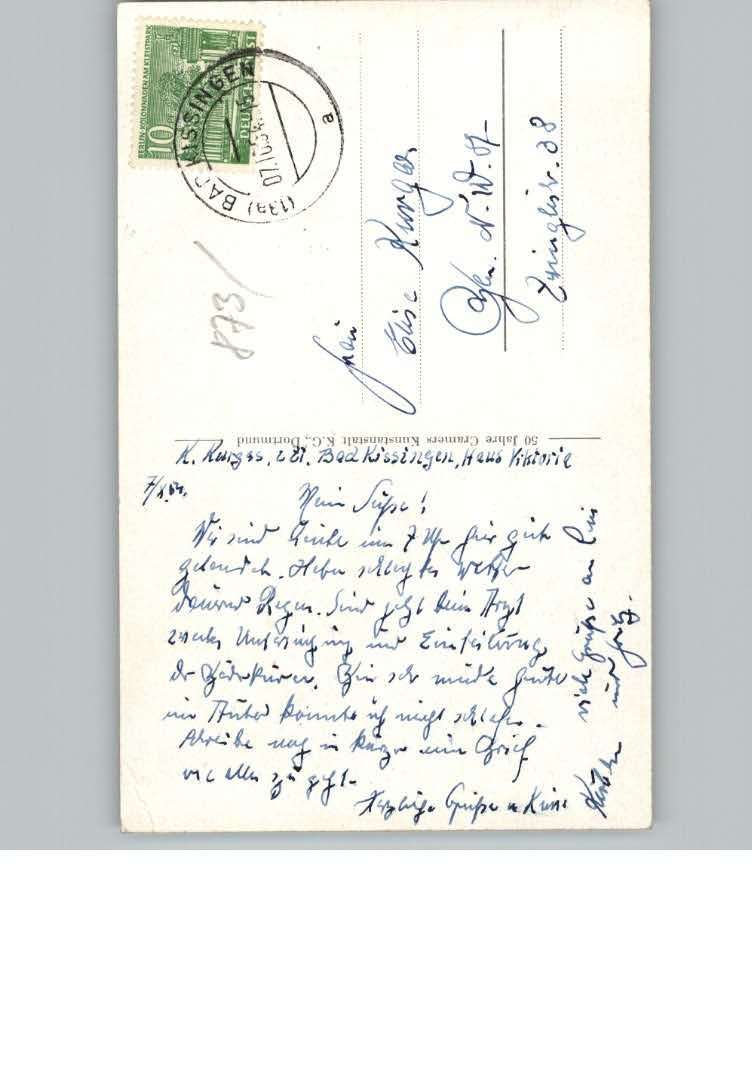 BERLIN-KOLONNADEN AM KLEISTPARK
10
DEUTSCHE
(13a) BAD KISSINGEN
07.10.54
a
873/
Frau
Elise Kurgas
Bln. N.W. 87
Zwinglistr. 38
50 Jahre Cramers Kunstanstalt K.G., Dortmund
K. Kurgas, z Zt. Bad Kissingen, Haus Viktoria
7/X.54.
Mein Süße!
Wir sind heute um 7 Uhr hier gut
gelandet. Haben schlechtes Wetter
dauernd Regen. Sind jetzt beim Arzt
zwecks Untersuchung und Einteilung
der Badekuren. Bin sehr müde heute
im Auto konnte ich nicht schlafen.
Schreibe noch in Kürze ein Brief
wie alles zu geht.
Herzliche Grüße u Küsse
viele Grüße an
und